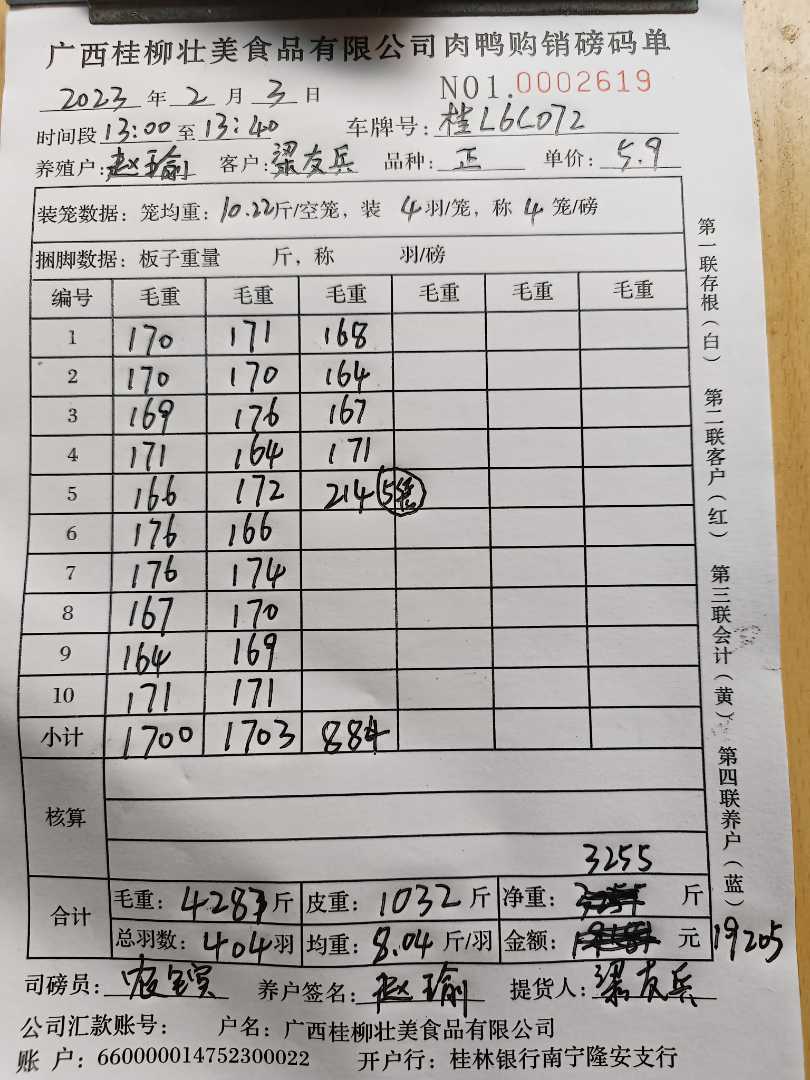 广西桂柳壮美食品有限公司肉鸭购销磅码单
2023 年 2 月 3 日 NO1.0002619
时间段 13:00 至 13:40 车牌号: 桂L6L072
养殖户: 赵瑜 客户: 梁友兵 品种: 正 单价: 5.9
装笼数据: 笼均重: 10.22斤/空笼, 装 4 羽/笼, 称 4 笼/磅
捆脚数据: 板子重量 斤, 称 羽/磅
编号 毛重 毛重 毛重 毛重 毛重 毛重
1 170 171 168
2 170 170 164
3 169 176 167
4 171 164 171
5 166 172 214 5笼
6 176 166
7 176 174
8 167 170
9 164 169
10 171 171
小计 1700 1703 884
核算
3255
合计 毛重: 4287斤 皮重: 1032斤 净重: 斤
总羽数: 404羽 均重: 8.04斤/羽 金额: 元 19205
司磅员: 养户签名: 赵瑜 提货人: 梁友兵
公司汇款账号: 户名: 广西桂柳壮美食品有限公司
账 户: 660000014752300022 开户行: 桂林银行南宁隆安支行
第一联存根(白) 第二联客户(红) 第三联会计(黄) 第四联养户(蓝)